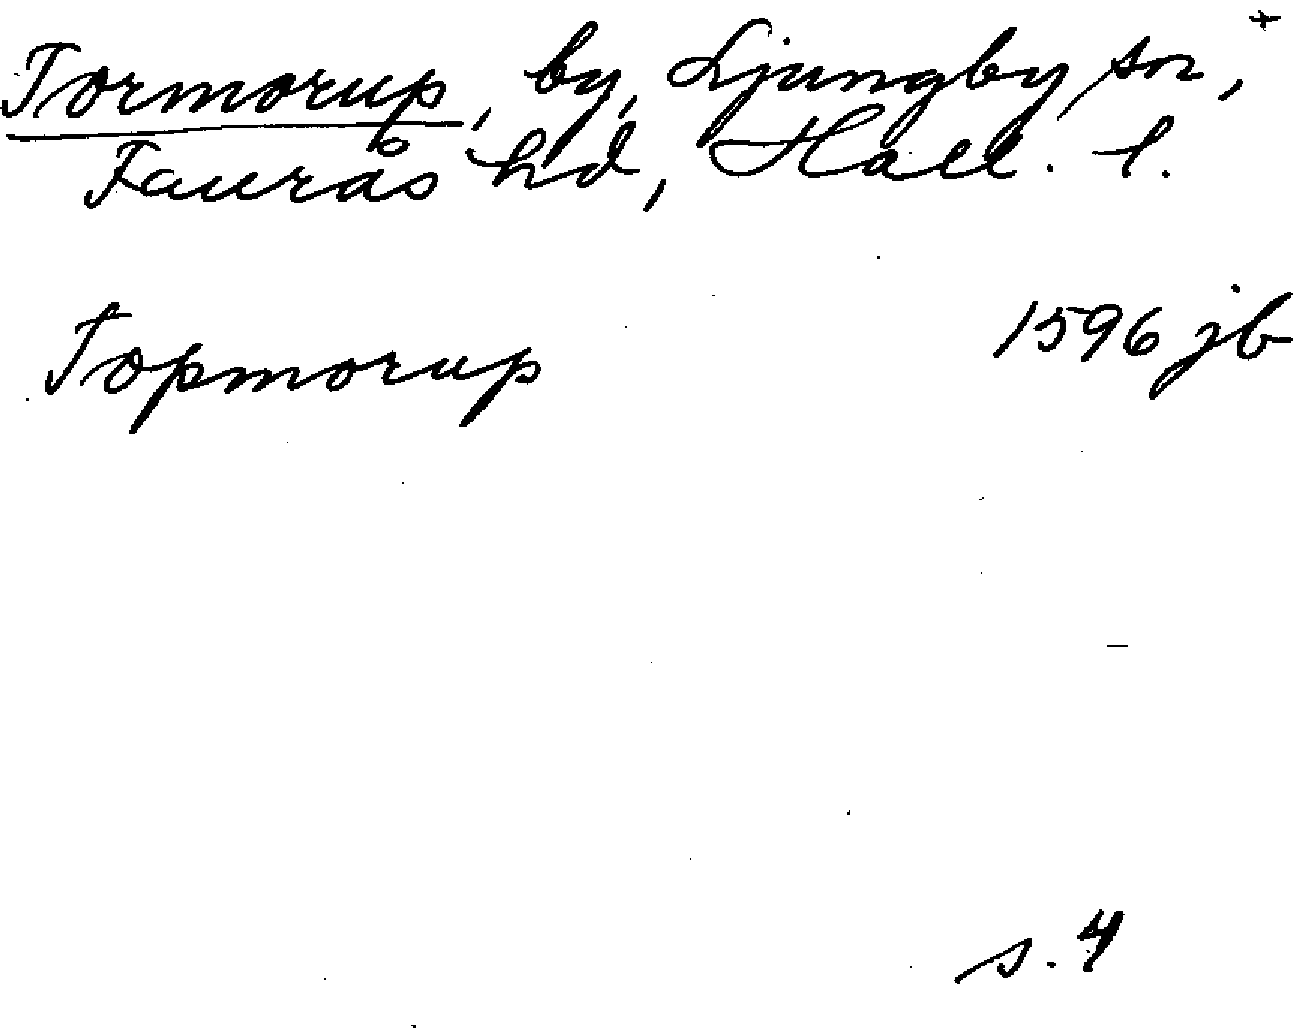 Tormorup, by, Ljungby sn, +
Faurås hd, Hall. l.
Topmorup 1596 jb
s. 4